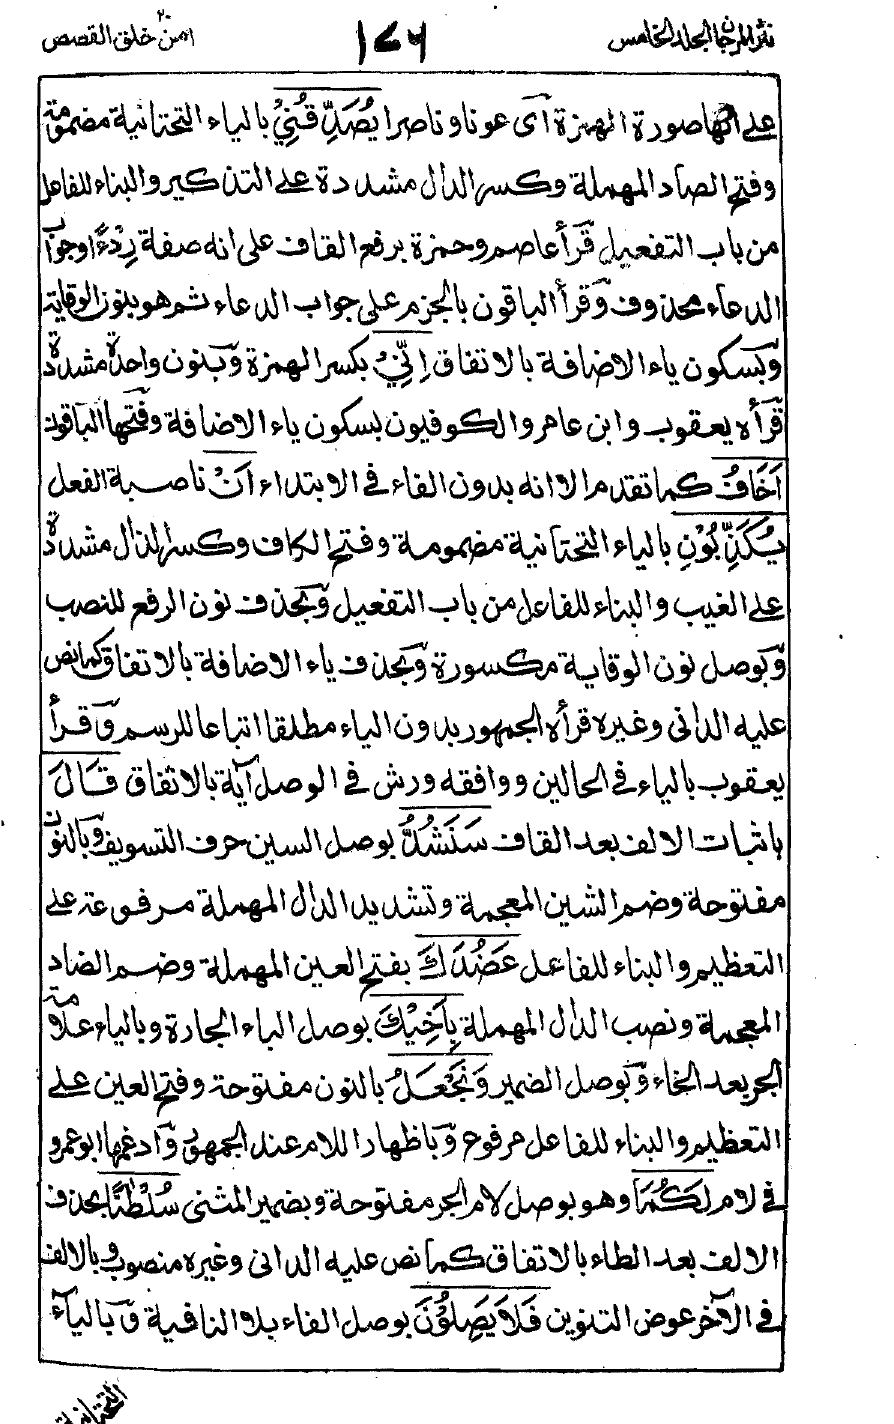 نثر المرجان المجلد الخامس
١٤٦
امن خلق ٢٠ القصص
على انها صورة الهمزة آى عونا وناصرا يُصَدِّقُنِيْ بالياء التحتانية مضمومة
وفتح الصاد المهملة وكسر الدال مشددة على التذكير والبناء للفاعل
من باب التفعيل قرأ عاصم وحمزة برفع القاف على انه صفة رِدْءًا وجواب
الدعاء محذوف وقرأ الباقون بالجزم على جواب الدعاء ثم هو بنون الوقاية
وبسكون ياء الاضافة بالاتفاق اِنِّيْ بكسر الهمزة وبنون واحدة مشددة
قرأه يعقوب وابن عامر والكوفيون بسكون ياء الاضافة وفتحها الباقون
اَخَافُ كما تقدم الا انه بدون الفاء فى الابتداء اَنْ ناصبة الفعل
يُكَذِّبُوْنِ بالياء التحتانية مضمومة وفتح الكاف وكسر الذال مشددة
على الغيب والبناء للفاعل من باب التفعيل وبحذف نون الرفع للنصب
وبوصل نون الوقاية مكسورة وبحذف ياء الاضافة بالاتفاق كما نص
عليه الدانى وغيره قرأه الجمهور بدون الياء مطلقا اتباعا للرسم وقرأ
يعقوب بالياء فى الحالين ووافقه ورش فى الوصل آية بالاتفاق قَالَ
باثبات الالف بعد القاف سَنَشُدُّ بوصل السين حرف التسويف وبالنون
مفتوحة وضم الشين المعجمة وتشديد الدال المهملة مرفوعة على
التعظيم والبناء للفاعل عَضُدَكَ بفتح العين المهملة وضم الضاد
المعجمة ونصب الدال المهملة بِاَخِيْكَ بوصل الباء الجارة وبالياء علامة
الجر بعد الخاء وبوصل الضمير وَنَجْعَلُ بالنون مفتوحة وفتح العين على
التعظيم والبناء للفاعل مرفوع وباظهار اللام عند الجمهور وادغمها ابو عمرو
فى لام لَكُمَا وهو بوصل لام الجر مفتوحة وبضمير المثنى سُلْطٰنًا بحذف
الالف بعد الطاء بالاتفاق كما نص عليه الدانى وغيره منصوب وبالالف
فى الآخر عوض التنوين فَلَا يَصِلُوْنَ بوصل الفاء بلا النافية وبالياء
التحتانية